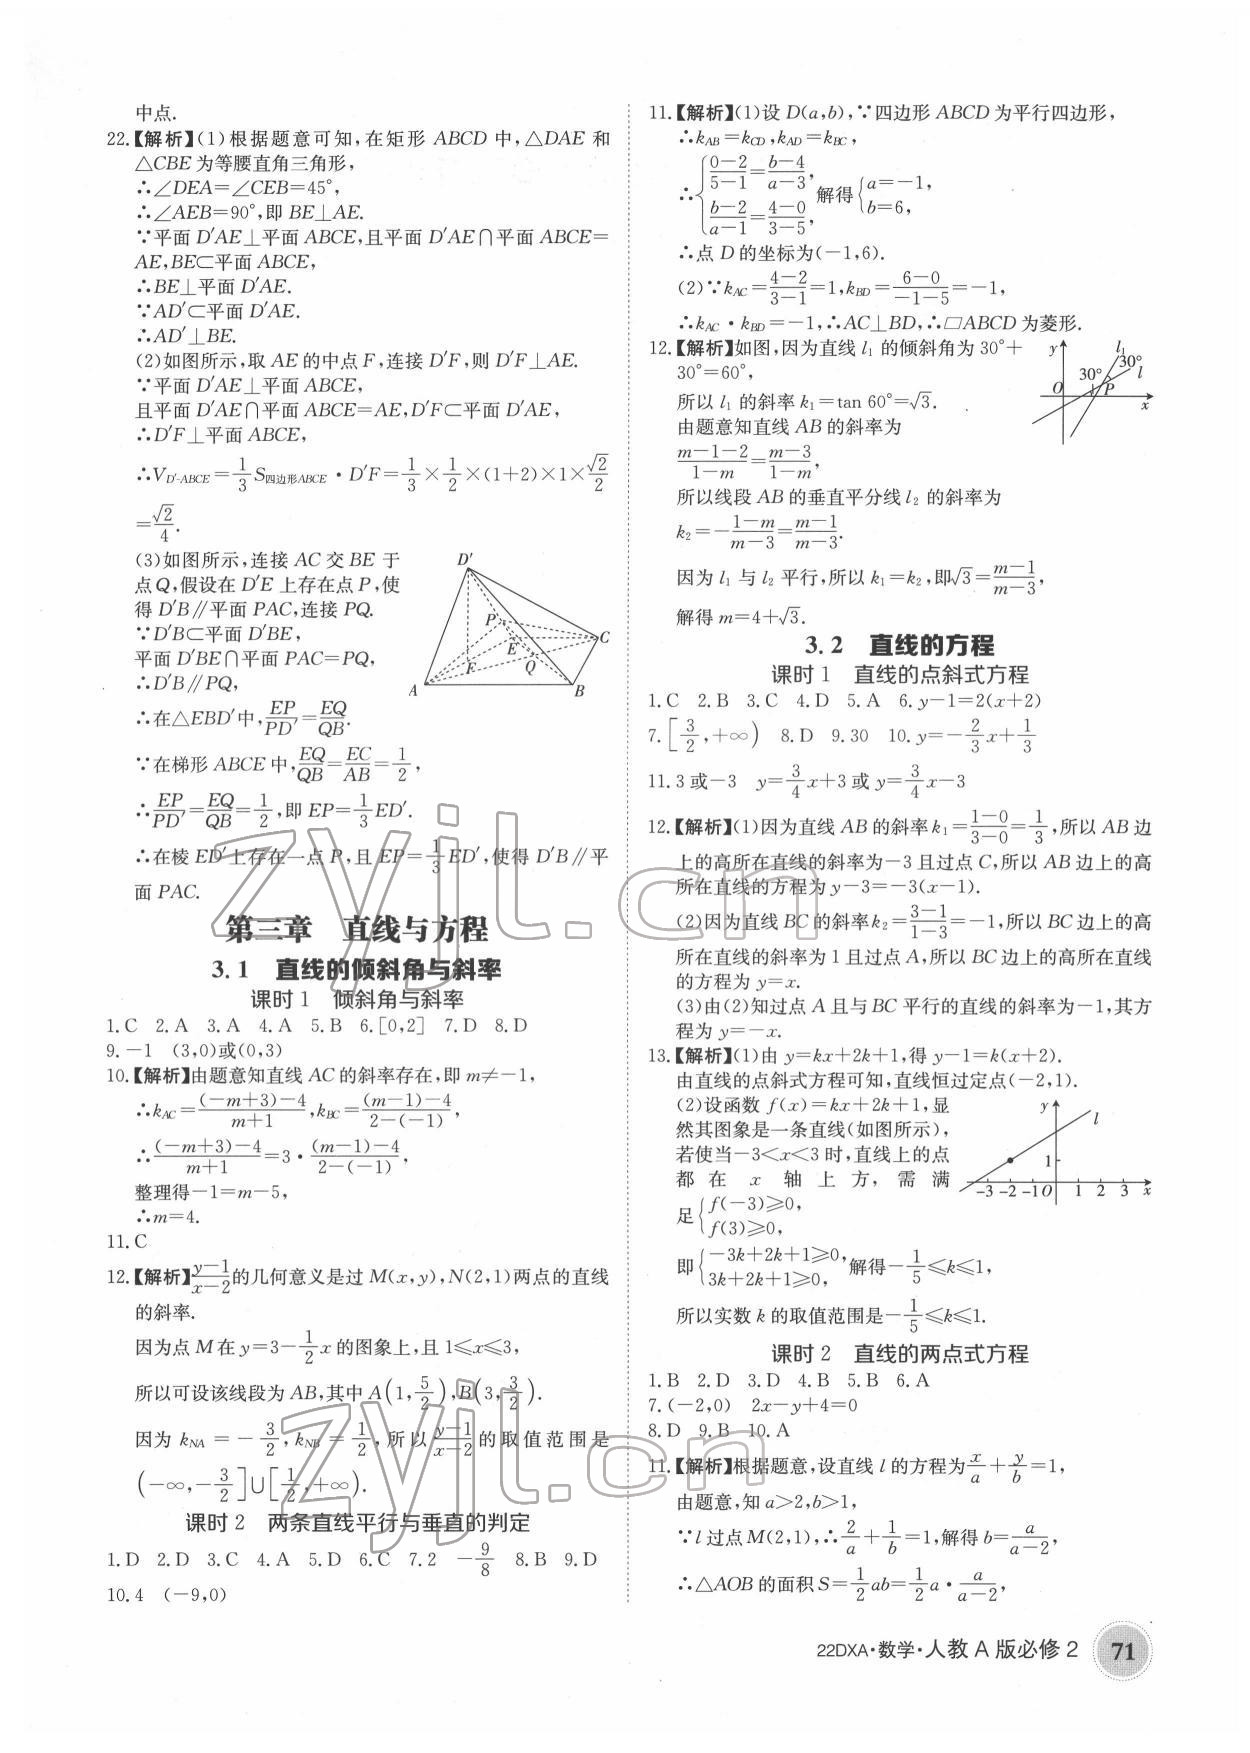 中点.
22.【解析】(1)根据题意可知,在矩形 ABCD 中,△DAE 和
△CBE 为等腰直角三角形,
∴∠DEA=∠CEB=45°,
∴∠AEB=90°,即 BE⊥AE.
∵平面 D′AE⊥平面 ABCE,且平面 D′AE∩平面 ABCE=
AE,BE⊂平面 ABCE,
∴BE⊥平面 D′AE.
∵AD′⊂平面 D′AE.
∴AD′⊥BE.
(2)如图所示,取 AE 的中点 F,连接 D′F,则 D′F⊥AE.
∵平面 D′AE⊥平面 ABCE,
且平面 D′AE∩平面 ABCE=AE,D′F⊂平面 D′AE,
∴D′F⊥平面 ABCE,
∴V_{D′-ABCE}=1/3 S_{四边形ABCE}·D′F=1/3×1/2×(1+2)×1×√2/2
=√2/4.
(3)如图所示,连接 AC 交 BE 于
点 Q,假设在 D′E 上存在点 P,使
得 D′B∥平面 PAC,连接 PQ.
∵D′B⊂平面 D′BE,
平面 D′BE∩平面 PAC=PQ,
∴D′B∥PQ,
∴在△EBD′中,EP/PD′=EQ/QB.
∵在梯形 ABCE 中,EQ/QB=EC/AB=1/2,
∴EP/PD′=EQ/QB=1/2,即 EP=1/3 ED′.
∴在棱 ED′上存在一点 P,且 EP=1/3 ED′,使得 D′B∥平
面 PAC.
D′
P
E
C
F
Q
A
B
第三章 直线与方程
3.1 直线的倾斜角与斜率
课时1 倾斜角与斜率
1.C 2.A 3.A 4.A 5.B 6.[0,2] 7.D 8.D
9.−1 (3,0)或(0,3)
10.【解析】由题意知直线 AC 的斜率存在,即 m≠−1,
∴k_{AC}=((−m+3)−4)/(m+1),k_{BC}=((m−1)−4)/(2−(−1)),
∴((−m+3)−4)/(m+1)=3·((m−1)−4)/(2−(−1)),
整理得−1=m−5,
∴m=4.
11.C
12.【解析】(y−1)/(x−2)的几何意义是过 M(x,y),N(2,1)两点的直线
的斜率.
因为点 M 在 y=3−1/2 x 的图象上,且 1≤x≤3,
所以可设该线段为 AB,其中 A(1,5/2),B(3,3/2).
因为 k_{NA}=−3/2,k_{NB}=1/2,所以(y−1)/(x−2)的取值范围是
(−∞,−3/2]∪[1/2,+∞).
课时2 两条直线平行与垂直的判定
1.D 2.D 3.C 4.A 5.D 6.C 7.2 −9/8 8.B 9.D
10.4 (−9,0)
11.【解析】(1)设 D(a,b),∵四边形 ABCD 为平行四边形,
∴k_{AB}=k_{CD},k_{AD}=k_{BC},
∴{(0−2)/(5−1)=(b−4)/(a−3), (b−2)/(a−1)=(4−0)/(3−5), 解得{a=−1, b=6,
∴点 D 的坐标为(−1,6).
(2)∵k_{AC}=(4−2)/(3−1)=1,k_{BD}=(6−0)/(−1−5)=−1,
∴k_{AC}·k_{BD}=−1,∴AC⊥BD,∴▱ABCD 为菱形.
12.【解析】如图,因为直线 l₁ 的倾斜角为 30°+
30°=60°,
所以 l₁ 的斜率 k₁=tan 60°=√3.
由题意知直线 AB 的斜率为
(m−1−2)/(1−m)=(m−3)/(1−m),
所以线段 AB 的垂直平分线 l₂ 的斜率为
k₂=−(1−m)/(m−3)=(m−1)/(m−3).
因为 l₁ 与 l₂ 平行,所以 k₁=k₂,即√3=(m−1)/(m−3),
解得 m=4+√3.
y
l₁
30°
30°
l
O
P
x
3.2 直线的方程
课时1 直线的点斜式方程
1.C 2.B 3.C 4.D 5.A 6.y−1=2(x+2)
7.[3/2,+∞) 8.D 9.30 10.y=−2/3 x+1/3
11.3 或−3 y=3/4 x+3 或 y=3/4 x−3
12.【解析】(1)因为直线 AB 的斜率 k₁=(1−0)/(3−0)=1/3,所以 AB 边
上的高所在直线的斜率为−3 且过点 C,所以 AB 边上的高
所在直线的方程为 y−3=−3(x−1).
(2)因为直线 BC 的斜率 k₂=(3−1)/(1−3)=−1,所以 BC 边上的高
所在直线的斜率为 1 且过点 A,所以 BC 边上的高所在直线
的方程为 y=x.
(3)由(2)知过点 A 且与 BC 平行的直线的斜率为−1,其方
程为 y=−x.
13.【解析】(1)由 y=kx+2k+1,得 y−1=k(x+2).
由直线的点斜式方程可知,直线恒过定点(−2,1).
(2)设函数 f(x)=kx+2k+1,显
然其图象是一条直线(如图所示),
若使当−3<x<3 时,直线上的点
都在 x 轴上方,需满
足{f(−3)≥0, f(3)≥0,
即{−3k+2k+1≥0, 3k+2k+1≥0, 解得−1/5≤k≤1,
所以实数 k 的取值范围是−1/5≤k≤1.
y
l
1
−3 −2 −1 O 1 2 3 x
课时2 直线的两点式方程
1.B 2.D 3.D 4.B 5.B 6.A
7.(−2,0) 2x−y+4=0
8.D 9.B 10.A
11.【解析】根据题意,设直线 l 的方程为x/a+y/b=1,
由题意,知 a>2,b>1,
∵l 过点 M(2,1),∴2/a+1/b=1,解得 b=a/(a−2),
∴△AOB 的面积 S=1/2 ab=1/2 a·a/(a−2),
22DXA·数学·人教 A 版必修 2
71
zyjl.cn
zyjl.cn